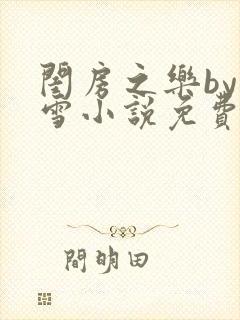 閨房之樂by
雪小說免費
間明田